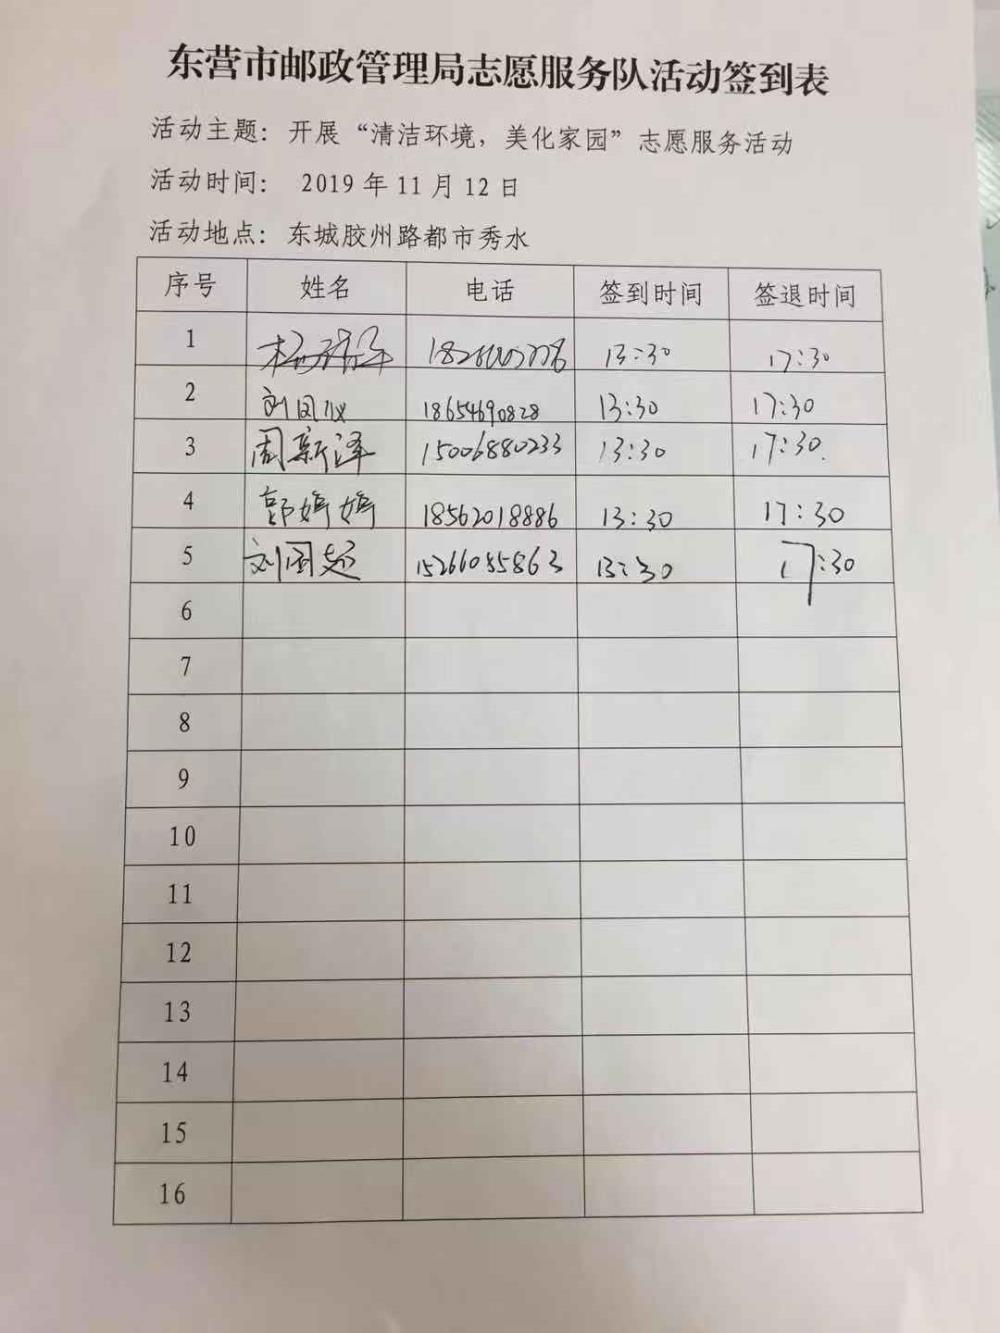 东营市邮政管理局志愿服务队活动签到表
活动主题：开展“清洁环境，美化家园”志愿服务活动
活动时间： 2019 年 11 月 12 日
活动地点：东城胶州路都市秀水
序号 姓名 电话 签到时间 签退时间
1 13:30 17:30
2 18654690828 13:30 17:30
3 周新泽 15006880233 13:30 17:30.
4 郭婷婷 18562018886 13:30 17:30
5 刘国超 15266055863 13:30 17:30
6
7
8
9
10
11
12
13
14
15
16